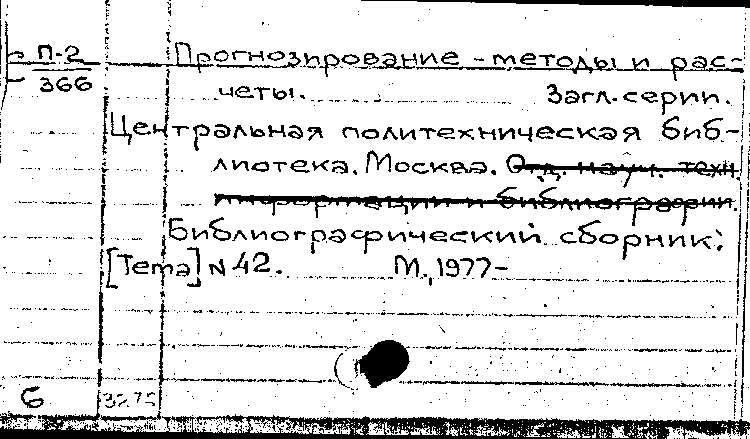 П-2 Прогнозирование - методы и рас-
366 четы. Загл. серии.
Центральная политехническая биб-
лиотека. Москва. Отд. науч. техн.
информации и библиографии.
Библиографический сборник:
[Тема] N 42. М., 1977-
6